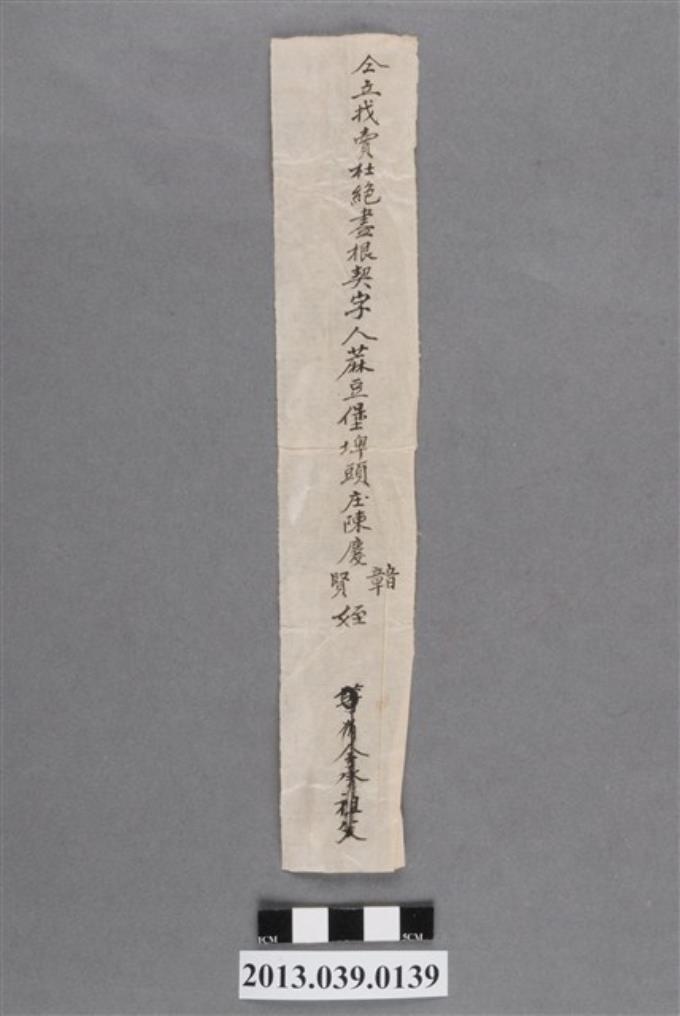 仝立找賣杜絕盡根契字人蔴荳堡埤頭庄陳慶
賢
姪
等有仝承祖父
1CM
5CM
2013.039.0139